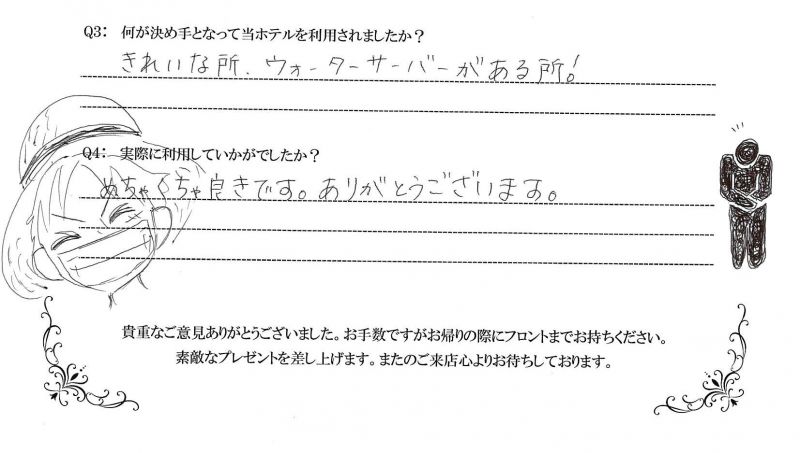 Q3: 何が決め手となって当ホテルを利用されましたか?
きれいな所、ウォーターサーバーがある所!
Q4: 実際に利用していかがでしたか?
めちゃくちゃ良きです。ありがとうございます。
貴重なご意見ありがとうございました。お手数ですがお帰りの際にフロントまでお持ちください。
素敵なプレゼントを差し上げます。またのご来店心よりお待ちしております。